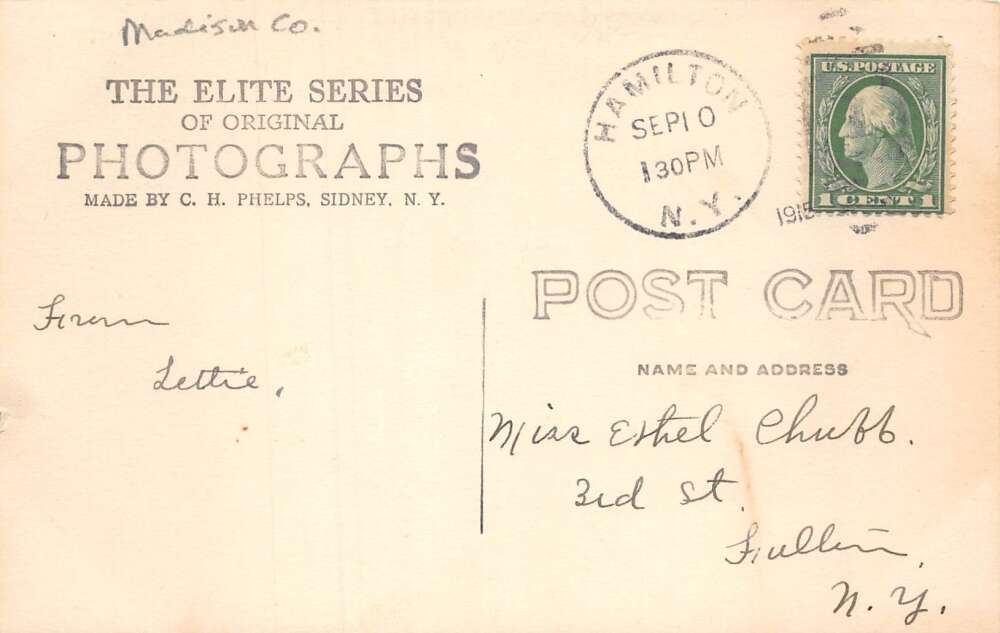 Madison Co.
THE ELITE SERIES
OF ORIGINAL
PHOTOGRAPHS
MADE BY C. H. PHELPS, SIDNEY, N. Y.
HAMILTON
SEP 10
130PM
N.Y.
1915
U.S. POSTAGE
1 CENT 1
POST CARD
NAME AND ADDRESS
From
Lettie,
Miss Ethel Chubb.
3rd St.
Fulton,
N. Y.